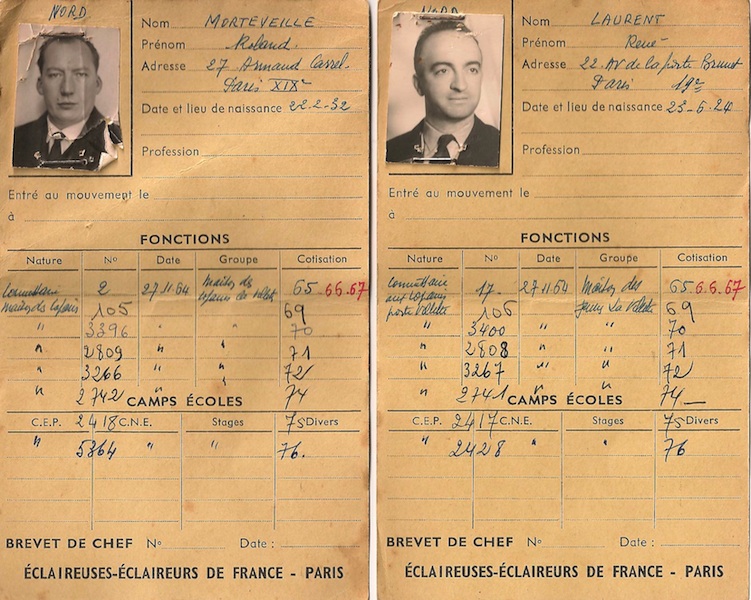 NORD
Nom MORTEVEILLE
Prénom Roland
Adresse 27 Armand Carrel
Paris XIXe
Date et lieu de naissance 22.2.32
Profession
Entré au mouvement le
à
FONCTIONS
Nature No Date Groupe Cotisation
2 27.11.64 Maîtres des 65.66.67
105 69
" 3396 " " 70
" 2809 " " 71
" 3266 " " 72
" 2742 " " 74
CAMPS ÉCOLES
C.E.P. 2418 C.N.E. Stages 75 Divers
" 5864 " " 76.
BREVET DE CHEF No Date :
ÉCLAIREUSES-ÉCLAIREURS DE FRANCE - PARIS
NORD
Nom LAURENT
Prénom René
Adresse 22 AV de la porte Brunet
Paris 19e
Date et lieu de naissance 23-6-24
Profession
Entré au mouvement le
à
FONCTIONS
Nature No Date Groupe Cotisation
17 27.11.64 Maîtres des 65.66.67
106 69
" 3400 " " 70
" 2808 " " 71
" 3267 " " 72
" 2741 " " 74
CAMPS ÉCOLES
C.E.P. 2417 C.N.E. Stages 75 Divers
" 2428 " " 76
BREVET DE CHEF No Date :
ÉCLAIREUSES-ÉCLAIREURS DE FRANCE - PARIS